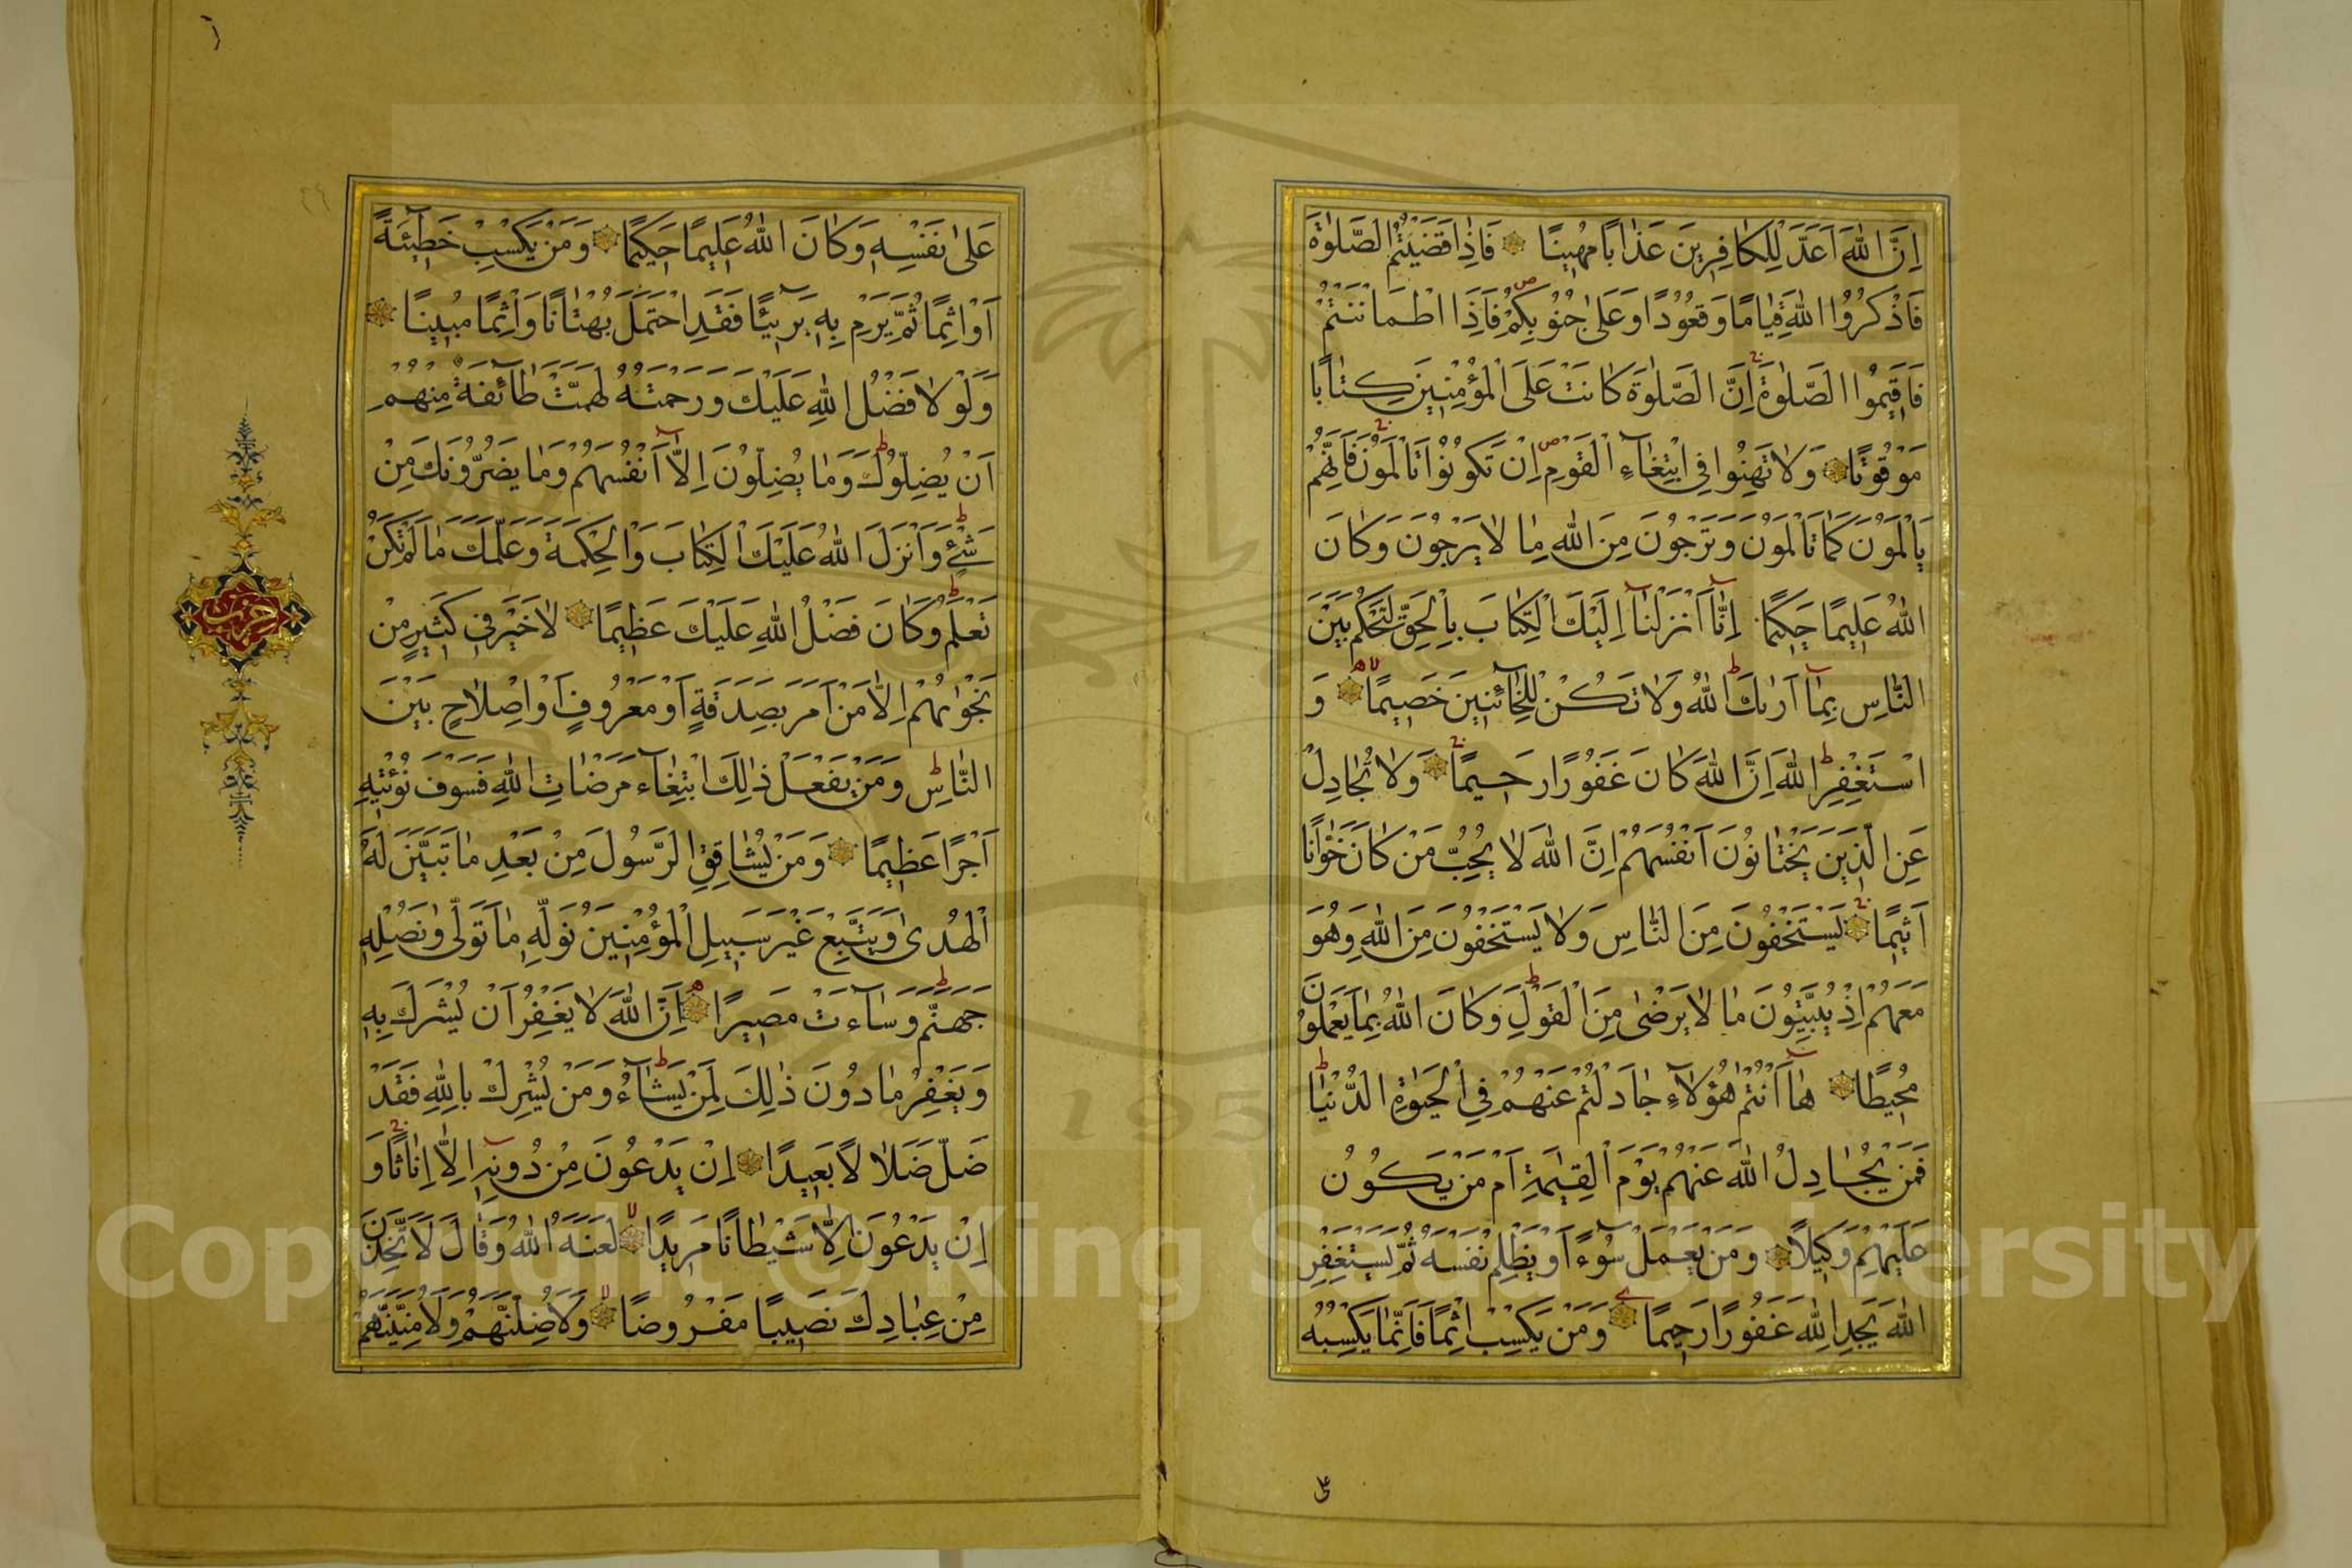 اِنَّ اللّٰهَ اَعَدَّ لِلْكَافِرِينَ عَذَابًا مُهِينًا فَاِذَا قَضَيْتُمُ الصَّلٰوةَ
فَاذْكُرُوا اللّٰهَ قِيَامًا وَقُعُودًا وَعَلٰى جُنُوبِكُمْ فَاِذَا اطْمَانَنْتُمْ
فَاَقِيمُوا الصَّلٰوةَ اِنَّ الصَّلٰوةَ كَانَتْ عَلَى الْمُؤْمِنِينَ كِتَابًا
مَوْقُوتًا وَلَا تَهِنُوا فِي ابْتِغَاءِ الْقَوْمِ اِنْ تَكُونُوا تَالَمُونَ فَاِنَّهُمْ
يَالَمُونَ كَمَا تَالَمُونَ وَتَرْجُونَ مِنَ اللّٰهِ مَا لَا يَرْجُونَ وَكَانَ
اللّٰهُ عَلِيمًا حَكِيمًا اِنَّا اَنْزَلْنَا اِلَيْكَ الْكِتَابَ بِالْحَقِّ لِتَحْكُمَ بَيْنَ
النَّاسِ بِمَا اَرٰىكَ اللّٰهُ وَلَا تَكُنْ لِلْخَائِنِينَ خَصِيمًا وَ
اسْتَغْفِرِ اللّٰهَ اِنَّ اللّٰهَ كَانَ غَفُورًا رَحِيمًا وَلَا تُجَادِلْ
عَنِ الَّذِينَ يَخْتَانُونَ اَنْفُسَهُمْ اِنَّ اللّٰهَ لَا يُحِبُّ مَنْ كَانَ خَوَّانًا
اَثِيمًا يَسْتَخْفُونَ مِنَ النَّاسِ وَلَا يَسْتَخْفُونَ مِنَ اللّٰهِ وَهُوَ
مَعَهُمْ اِذْ يُبَيِّتُونَ مَا لَا يَرْضٰى مِنَ الْقَوْلِ وَكَانَ اللّٰهُ بِمَا يَعْمَلُونَ
مُحِيطًا هَا اَنْتُمْ هٰؤُلَاءِ جَادَلْتُمْ عَنْهُمْ فِي الْحَيٰوةِ الدُّنْيَا
فَمَنْ يُجَادِلُ اللّٰهَ عَنْهُمْ يَوْمَ الْقِيٰمَةِ اَمْ مَنْ يَكُونُ
عَلَيْهِمْ وَكِيلًا وَمَنْ يَعْمَلْ سُوءًا اَوْ يَظْلِمْ نَفْسَهُ ثُمَّ يَسْتَغْفِرِ
اللّٰهَ يَجِدِ اللّٰهَ غَفُورًا رَحِيمًا وَمَنْ يَكْسِبْ اِثْمًا فَاِنَّمَا يَكْسِبُهُ
على
عَلٰى نَفْسِهِ وَكَانَ اللّٰهُ عَلِيمًا حَكِيمًا وَمَنْ يَكْسِبْ خَطِيئَةً
اَوْ اِثْمًا ثُمَّ يَرْمِ بِهِ بَرِيئًا فَقَدِ احْتَمَلَ بُهْتَانًا وَاِثْمًا مُبِينًا
وَلَوْلَا فَضْلُ اللّٰهِ عَلَيْكَ وَرَحْمَتُهُ لَهَمَّتْ طَائِفَةٌ مِنْهُمْ
اَنْ يُضِلُّوكَ وَمَا يُضِلُّونَ اِلَّا اَنْفُسَهُمْ وَمَا يَضُرُّونَكَ مِنْ
شَيْءٍ وَاَنْزَلَ اللّٰهُ عَلَيْكَ الْكِتَابَ وَالْحِكْمَةَ وَعَلَّمَكَ مَا لَمْ تَكُنْ
تَعْلَمُ وَكَانَ فَضْلُ اللّٰهِ عَلَيْكَ عَظِيمًا لَا خَيْرَ فِي كَثِيرٍ مِنْ
نَجْوٰىهُمْ اِلَّا مَنْ اَمَرَ بِصَدَقَةٍ اَوْ مَعْرُوفٍ اَوْ اِصْلَاحٍ بَيْنَ
النَّاسِ وَمَنْ يَفْعَلْ ذٰلِكَ ابْتِغَاءَ مَرْضَاتِ اللّٰهِ فَسَوْفَ نُؤْتِيهِ
اَجْرًا عَظِيمًا وَمَنْ يُشَاقِقِ الرَّسُولَ مِنْ بَعْدِ مَا تَبَيَّنَ لَهُ
الْهُدٰى وَيَتَّبِعْ غَيْرَ سَبِيلِ الْمُؤْمِنِينَ نُوَلِّهِ مَا تَوَلّٰى وَنُصْلِهِ
جَهَنَّمَ وَسَاءَتْ مَصِيرًا اِنَّ اللّٰهَ لَا يَغْفِرُ اَنْ يُشْرَكَ بِهِ
وَيَغْفِرُ مَا دُونَ ذٰلِكَ لِمَنْ يَشَاءُ وَمَنْ يُشْرِكْ بِاللّٰهِ فَقَدْ
ضَلَّ ضَلَالًا بَعِيدًا اِنْ يَدْعُونَ مِنْ دُونِهِ اِلَّا اِنَاثًا وَ
اِنْ يَدْعُونَ اِلَّا شَيْطَانًا مَرِيدًا لَعَنَهُ اللّٰهُ وَقَالَ لَاَتَّخِذَنَّ
مِنْ عِبَادِكَ نَصِيبًا مَفْرُوضًا وَلَاُضِلَّنَّهُمْ وَلَاُمَنِّيَنَّهُمْ
حزب
Copyright © King Saud University
195